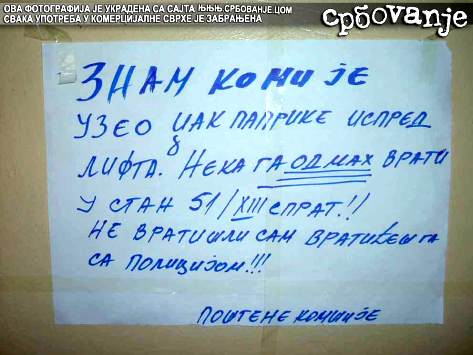 ОВА ФОТОГРАФИЈА ЈЕ УКРАДЕНА СА САЈТА ЊЊЊ.СРБОВАЊЕ.ЦОМ
СВАКА УПОТРЕБА У КОМЕРЦИЈАЛНЕ СВРХЕ ЈЕ ЗАБРАЊЕНА
србоvанје
ЗНАМ КОМИ ЈЕ
УЗЕО ЏАК ПАПРИКЕ ИСПРЕД
ЛИФТА. НЕКА ГА ОДМАХ ВРАТИ
У СТАН 51/XIII СПРАТ!!
НЕ ВРАТИШЛИ САМ ВРАТИЋЕШ ГА
СА ПОЛИЦИЈОМ!!!
ПОШТЕНЕ КОМШИЈЕ